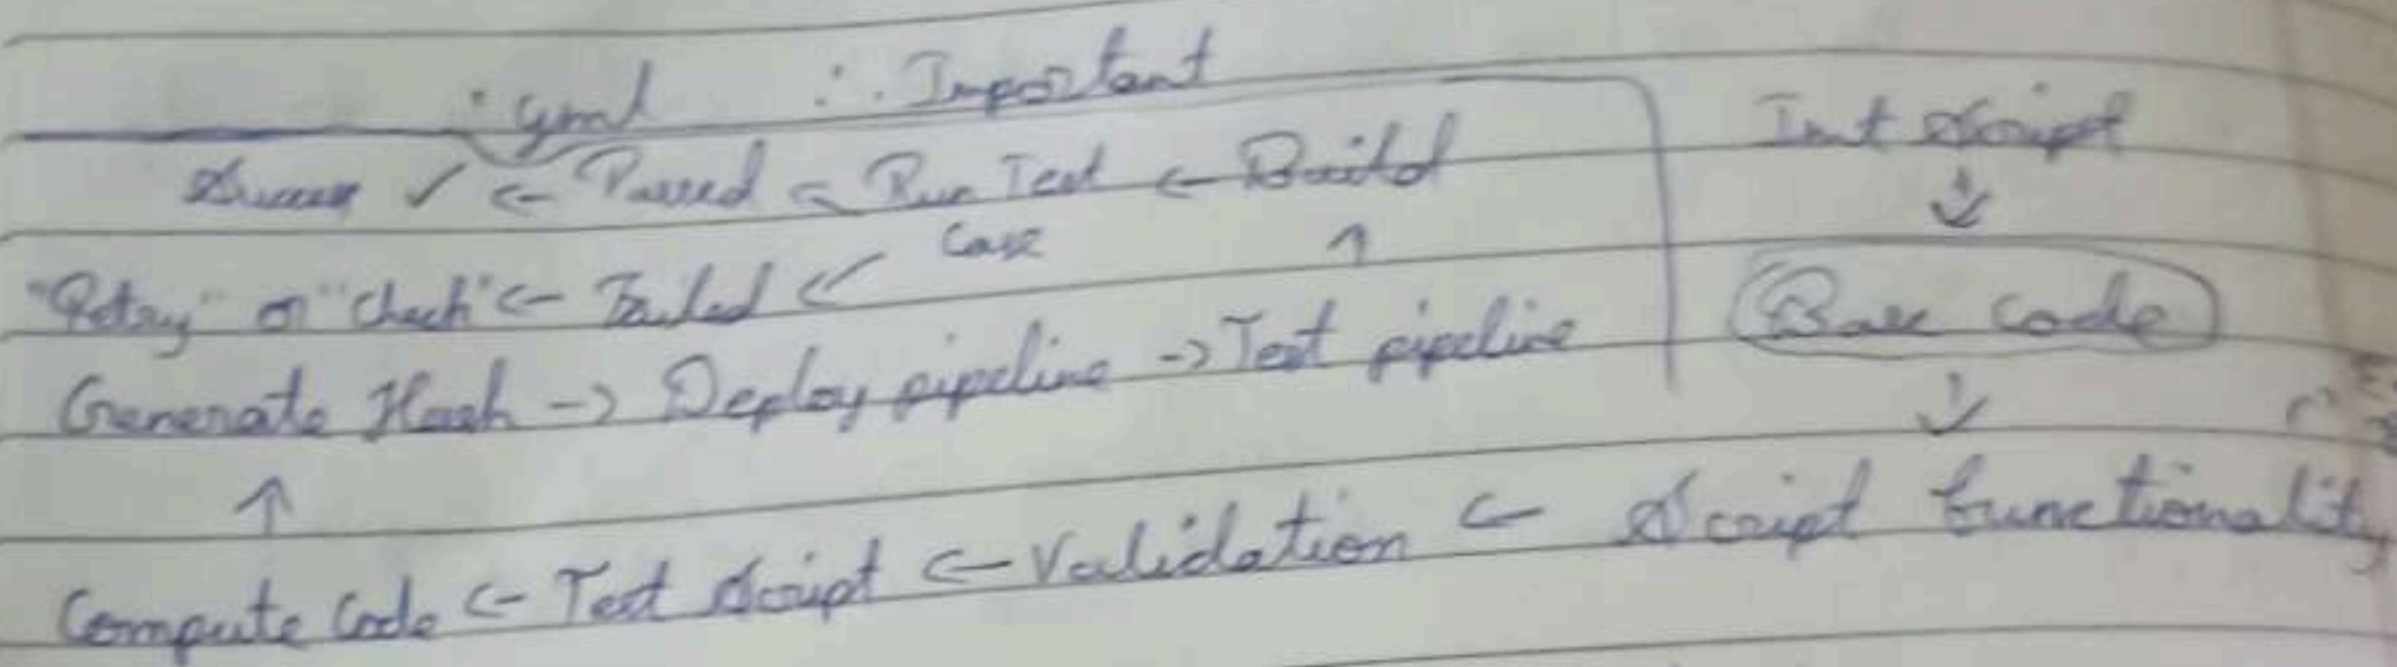 : yml ∴ Important
Success ✓ <- Passed <- Run Test <- Build
Case ↑
"Retry" or "check" <- Failed <-
Generate Hash -> Deploy pipeline -> Test pipeline
↑
Compute Code <- Test Script <- Validation <- Script functionality
Init Script
↓
Base Code
↓